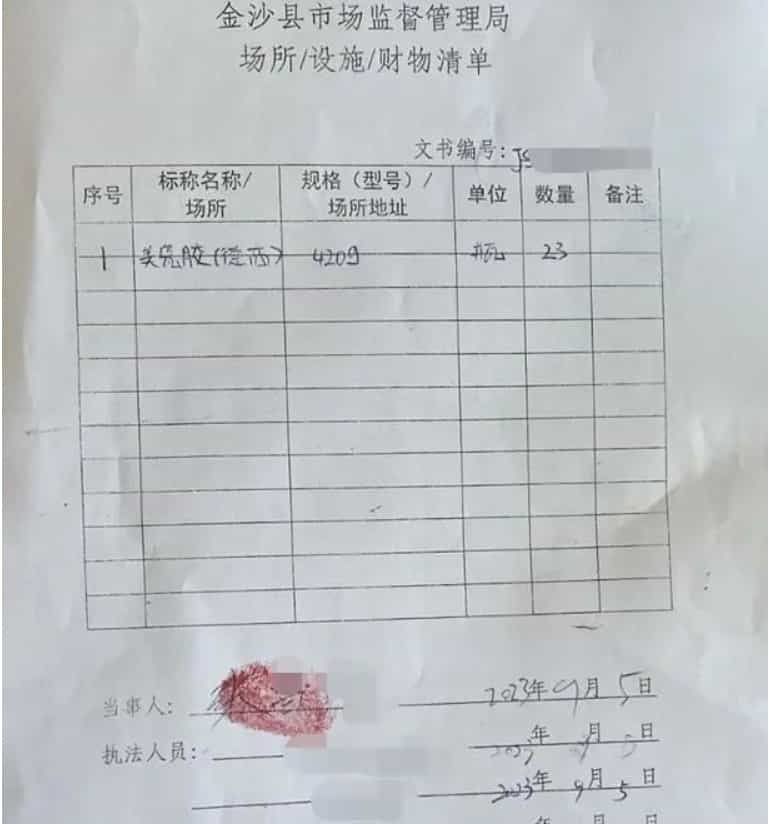 金沙县市场监督管理局
场所/设施/财物清单
文书编号：JS
序号 标称名称/场所 规格（型号）/场所地址 单位 数量 备注
1 美凭胶(德西) 420g 瓶 23
当事人： 2023年9月5日
执法人员： 2023年9月5日
2023年9月5日
年 月 日